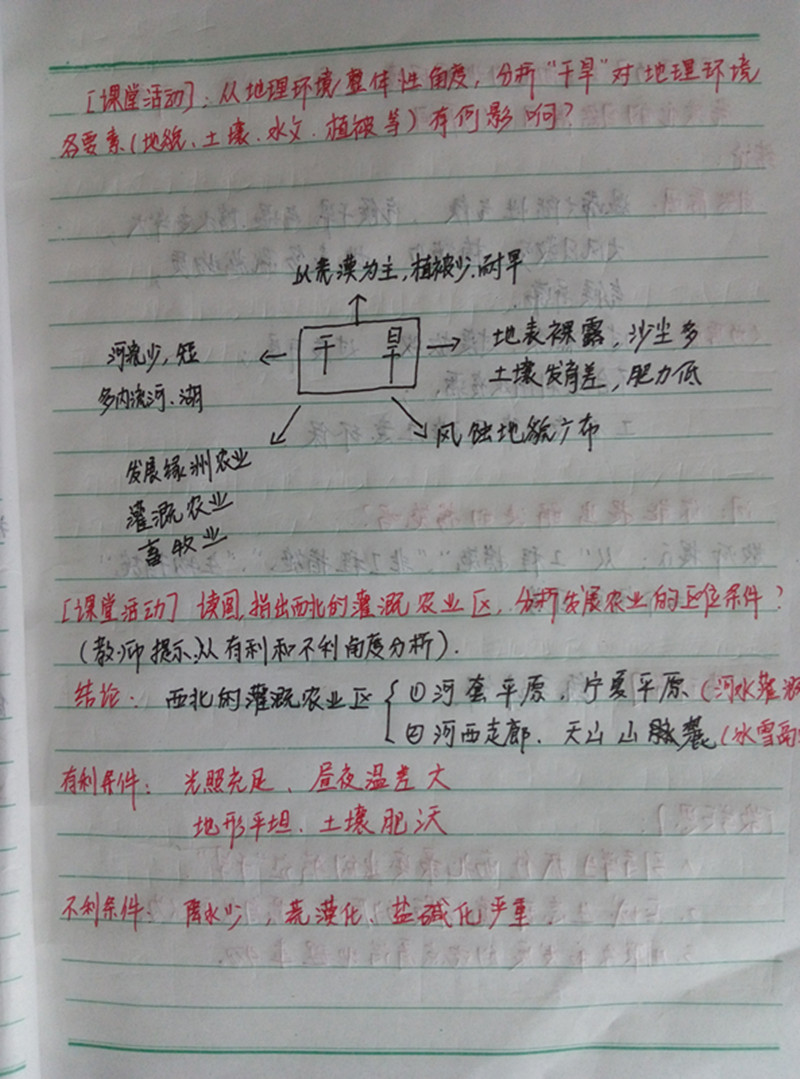 [课堂活动]：从地理环境整体性角度，分析"干旱"对地理环境
各要素(地貌、土壤、水文、植被等)有何影响?
以荒漠为主，植被少，耐旱
河流少，短
多内流河、湖
干 旱
地表裸露，沙尘多
土壤发育差，肥力低
风蚀地貌广布
发展绿洲农业
灌溉农业
畜牧业
[课堂活动] 读图，指出西北的灌溉农业区，分析发展农业的区位条件?
(教师提示：从有利和不利角度分析).
结论： 西北的灌溉农业区
①河套平原、宁夏平原 (河水灌溉
②河西走廊、天山山脉麓 (冰雪融
有利条件： 光照充足、昼夜温差大
地形平坦、土壤肥沃
不利条件： 降水少，荒漠化、盐碱化严重.